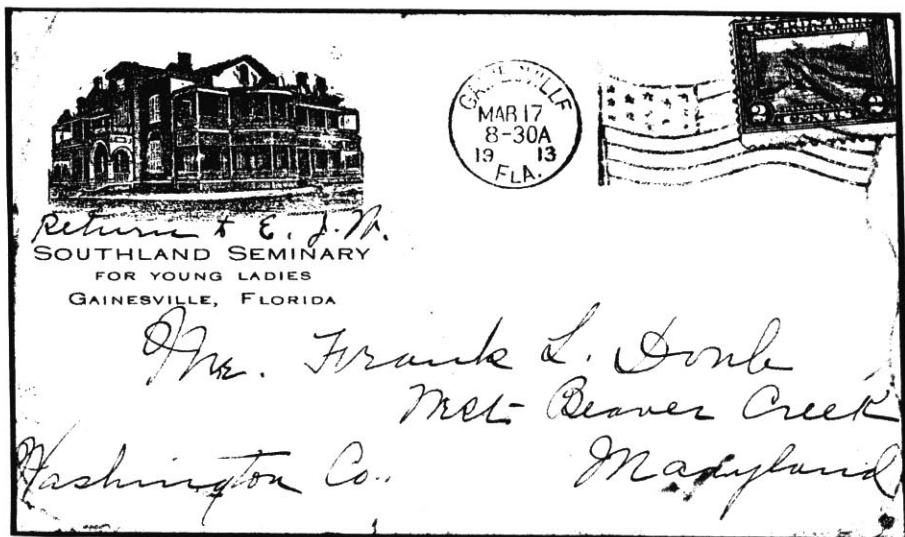 GAINESVILLE
MAR 17
8-30A
19 13
FLA.
2 CENTS 2
Return to E. J. M.
SOUTHLAND SEMINARY
FOR YOUNG LADIES
GAINESVILLE, FLORIDA
Mr. Frank L. Doub
West Beaver Creek
Washington Co. Maryland